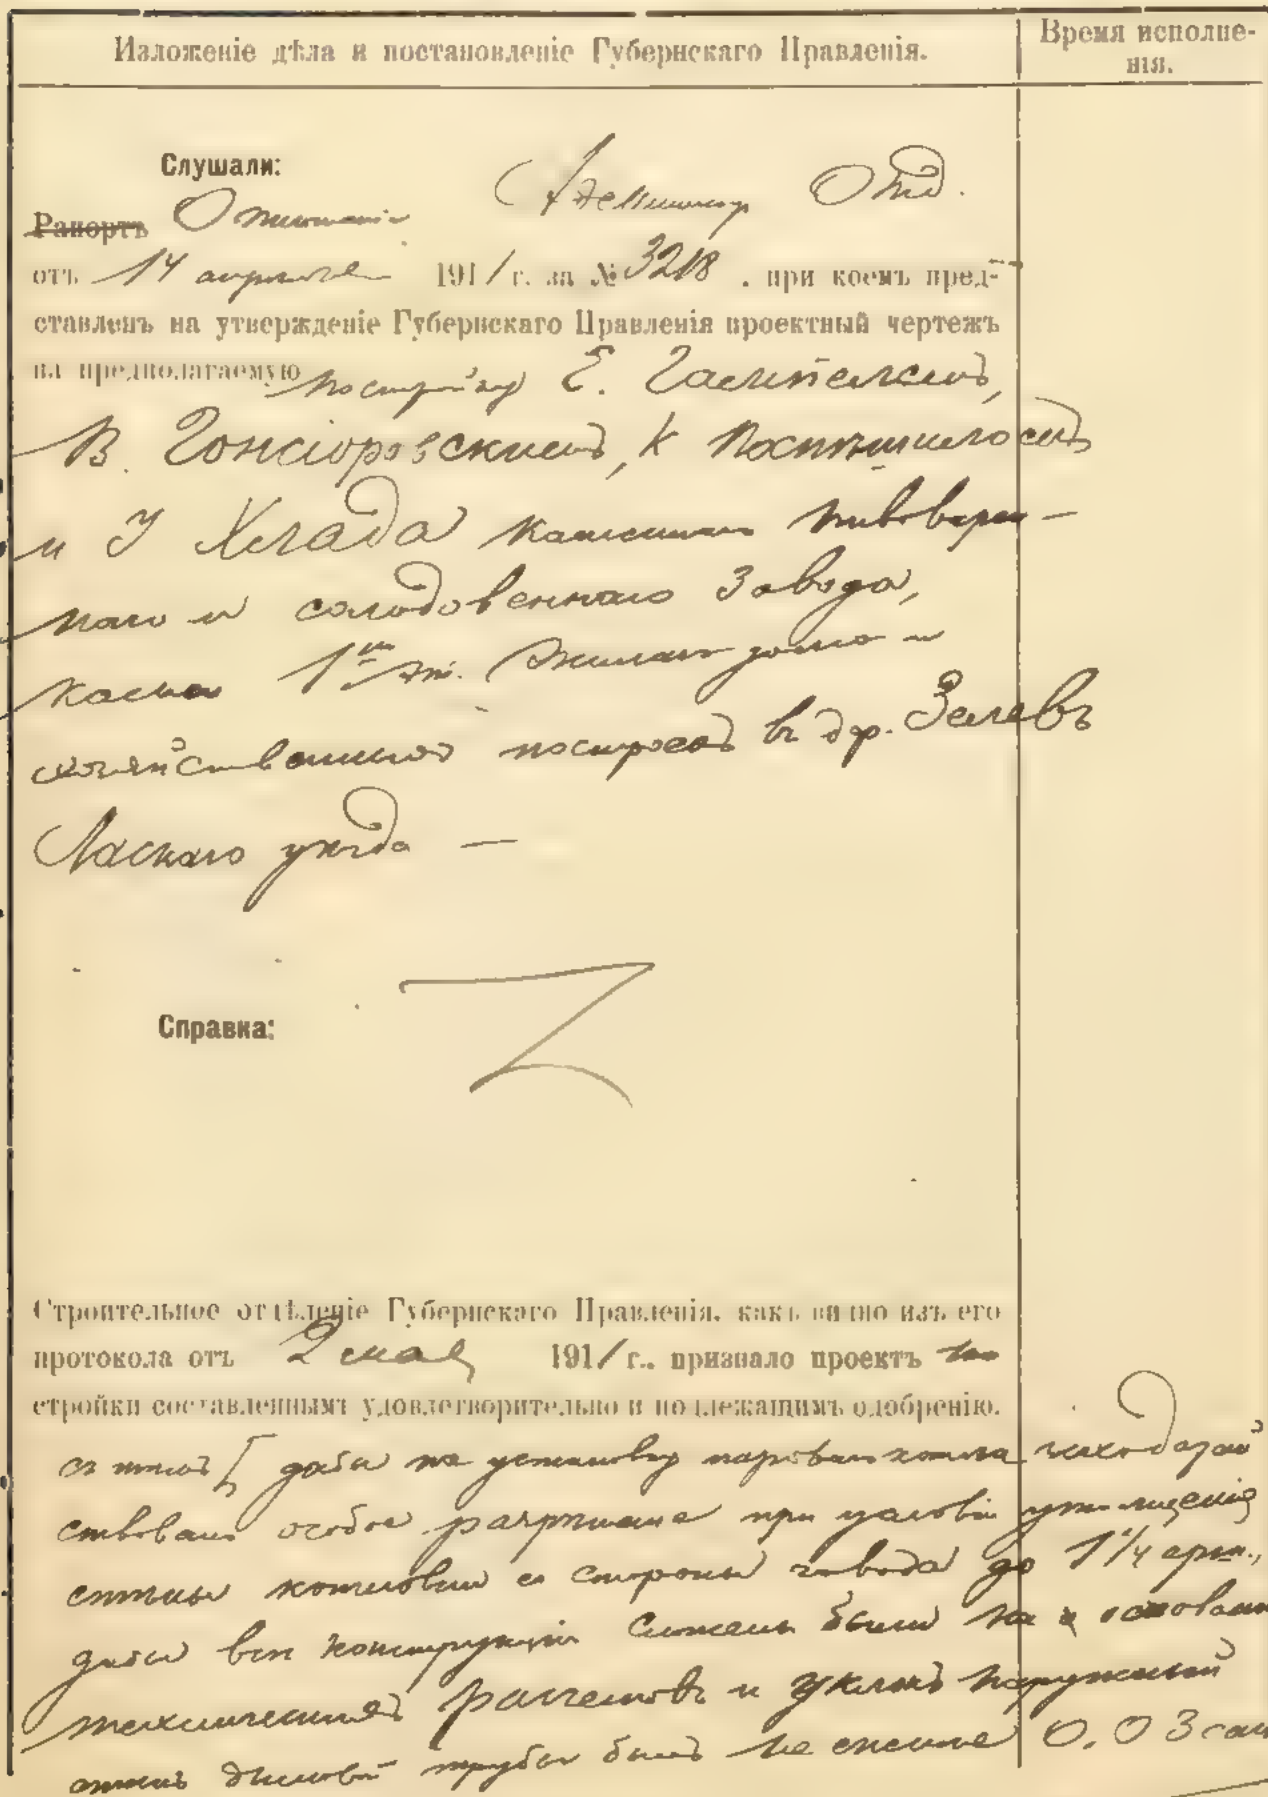 Изложеніе дѣла и постановленіе Губернскаго Правленія.
Время исполне-
нія.
Слушали:
Рапортъ Отношеніе Администр Отд.
отъ 14 апрѣля 1911 г. за № 3218. при коемъ пред-
ставленъ на утвержденіе Губернскаго Правленія проектный чертежъ
на предполагаемую постройку Е.
В. Гонсіоровскимъ, К
и І Хлада каменнаго пивоварен-
наго и солодовеннаго завода,
камен 1 эт. жилаго дома и
хозяйственныхъ построекъ въ др. Зелевъ
Ласкаго уѣзда —
Справка:
Строительное отдѣленіе Губернскаго Правленія, какъ видно изъ его
протокола отъ 2 мая 1911 г., признало проектъ по
стройки составленнымъ удовлетворительно и подлежащимъ одобренію.
съ тѣмъ дабы на установку пароваго котла исходатай
ствовано особое разрѣшеніе при условіи утолщенія
стѣны котловни со стороны завода до 1 1/4 арш.,
дабы всѣ конструкціи были на основаніи
техническихъ расчетовъ и уклонъ наружный
стѣнъ дымовой трубы былъ не менѣе 0.03 саж